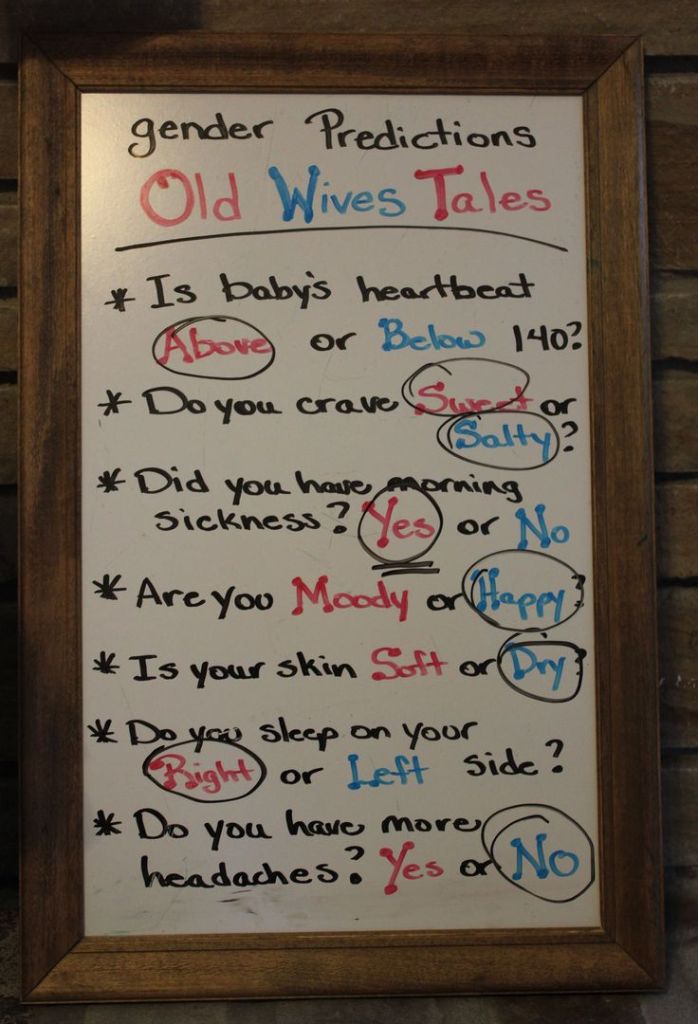 gender Predictions
Old Wives Tales
* Is baby's heartbeat
Above or Below 140?
* Do you crave Sweet or
Salty?
* Did you have morning
sickness? Yes or No
* Are you Moody or Happy?
* Is your skin Soft or Dry?
* Do you sleep on your
Right or Left side?
* Do you have more
headaches? Yes or No